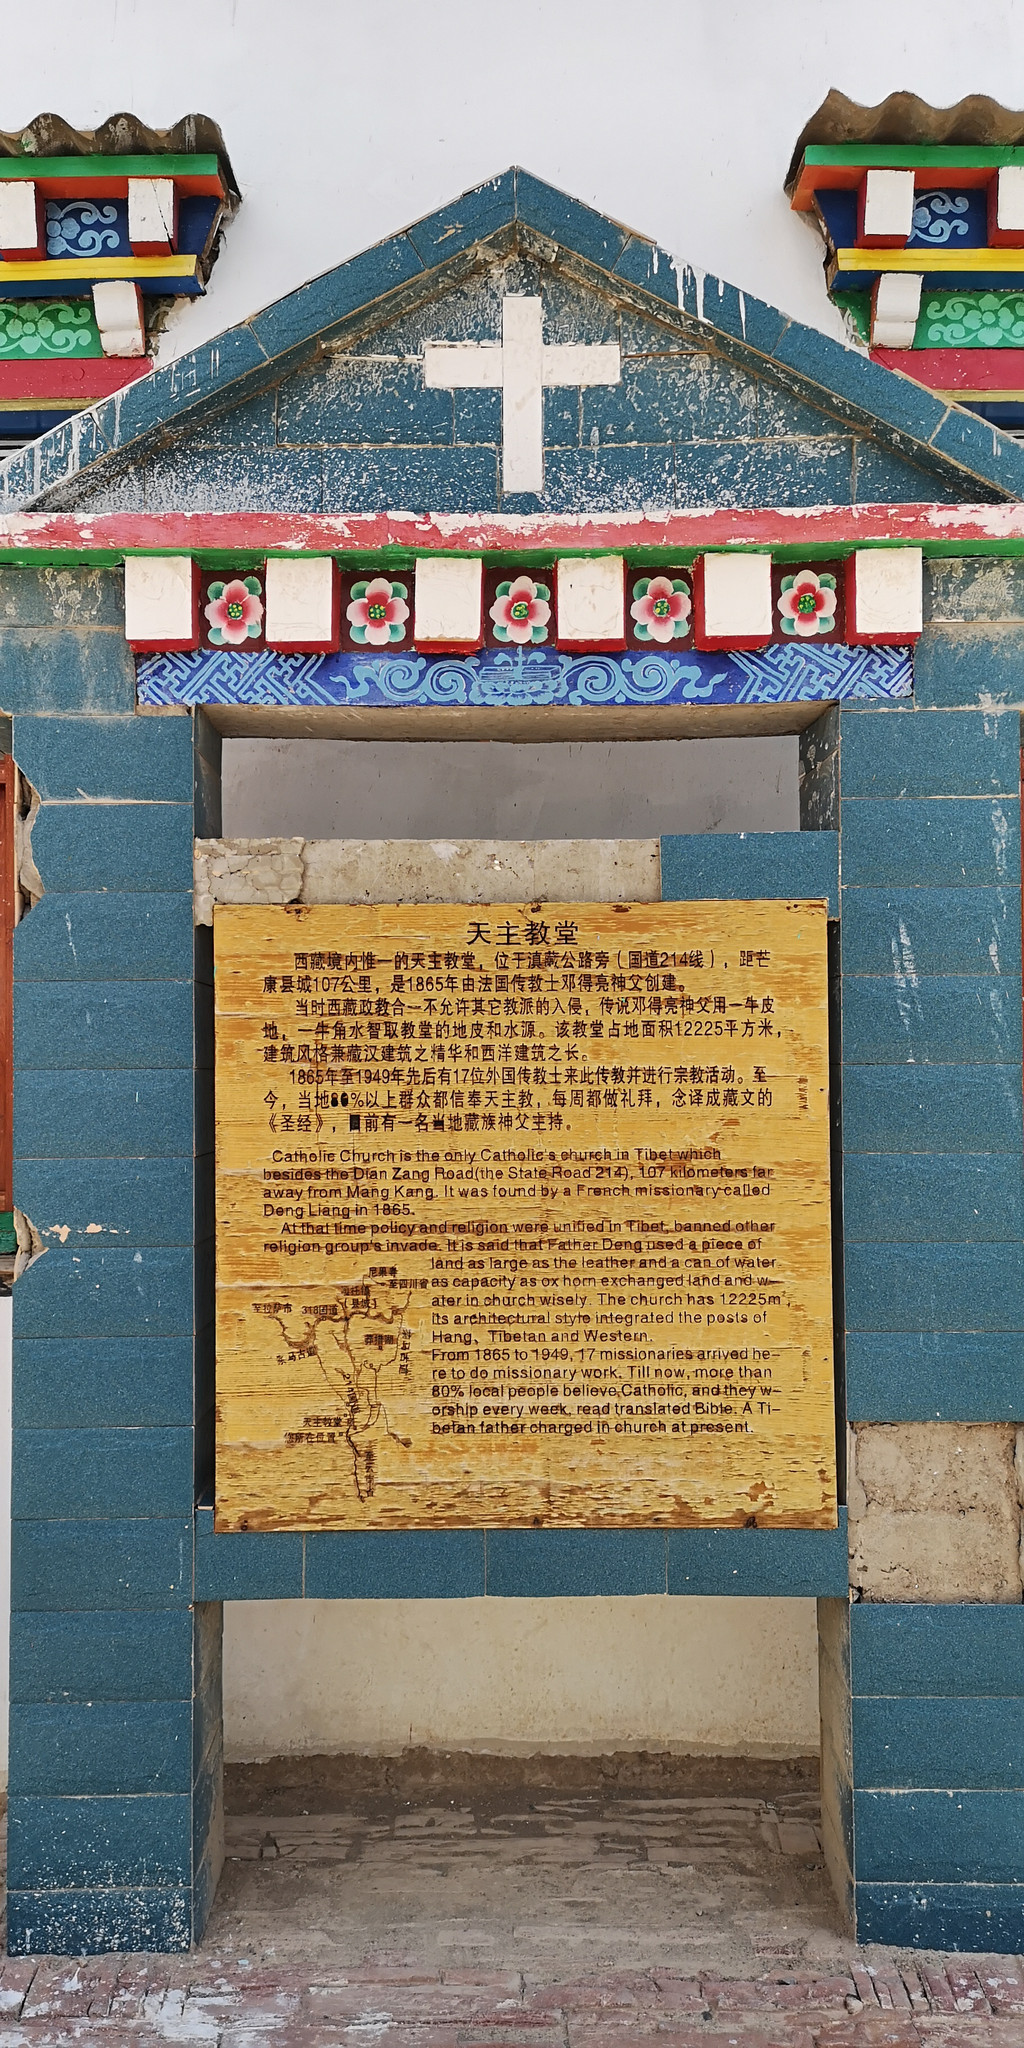 天主教堂
西藏境内惟一的天主教堂，位于滇藏公路旁（国道214线），距芒
康县城107公里，是1865年由法国传教士邓得亮神父创建。
当时西藏政教合一不允许其它教派的入侵，传说邓得亮神父用一牛皮
地，一牛角水智取教堂的地皮和水源。该教堂占地面积12225平方米，
建筑风格兼藏汉建筑之精华和西洋建筑之长。
1865年至1949年先后有17位外国传教士来此传教并进行宗教活动。至
今，当地80%以上群众都信奉天主教，每周都做礼拜，念译成藏文的
《圣经》，目前有一名当地藏族神父主持。
Catholic Church is the only Catholic's church in Tibet which
besides the Dian Zang Road(the State Road 214), 107 kilometers far
away from Mang Kang. It was found by a French missionary called
Deng Liang in 1865.
At that time policy and religion were unified in Tibet, banned other
religion group's invade. It is said that Father Deng used a piece of
land as large as the leather and a can of water
as capacity as ox horn exchanged land and w-
ater in church wisely. The church has 12225m²,
its architectural style integrated the posts of
Hang, Tibetan and Western.
From 1865 to 1949, 17 missionaries arrived he-
re to do missionary work. Till now, more than
80% local people believe Catholic, and they w-
orship every week, read translated Bible. A Ti-
betan father charged in church at present.
至四川省
至拉萨市
318国道
（县城）
莽措湖
茶马古道
214国道
天主教堂
您所在位置